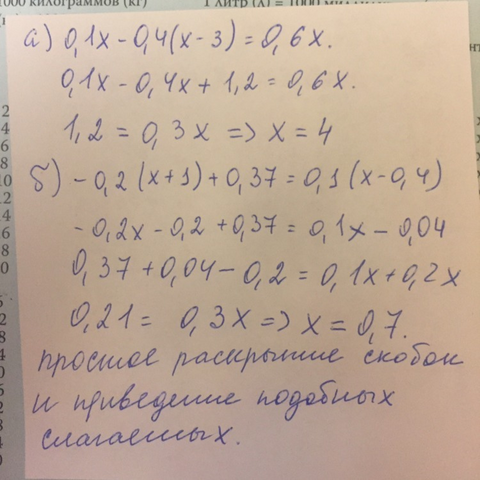 1000 килограммов (кг)
1 литр (л) = 1000
а) 0,1x - 0,4(x - 3) = 0,6x.
0,1x - 0,4x + 1,2 = 0,6x.
1,2 = 0,3x => x = 4
б) - 0,2 (x + 1) + 0,37 = 0,1 (x - 0,4)
- 0,2x - 0,2 + 0,37 = 0,1x - 0,04
0,37 + 0,04 - 0,2 = 0,1x + 0,2x
0,21 = 0,3x => x = 0,7.
простое раскрытие скобок
и приведение подобных
слагаемых.